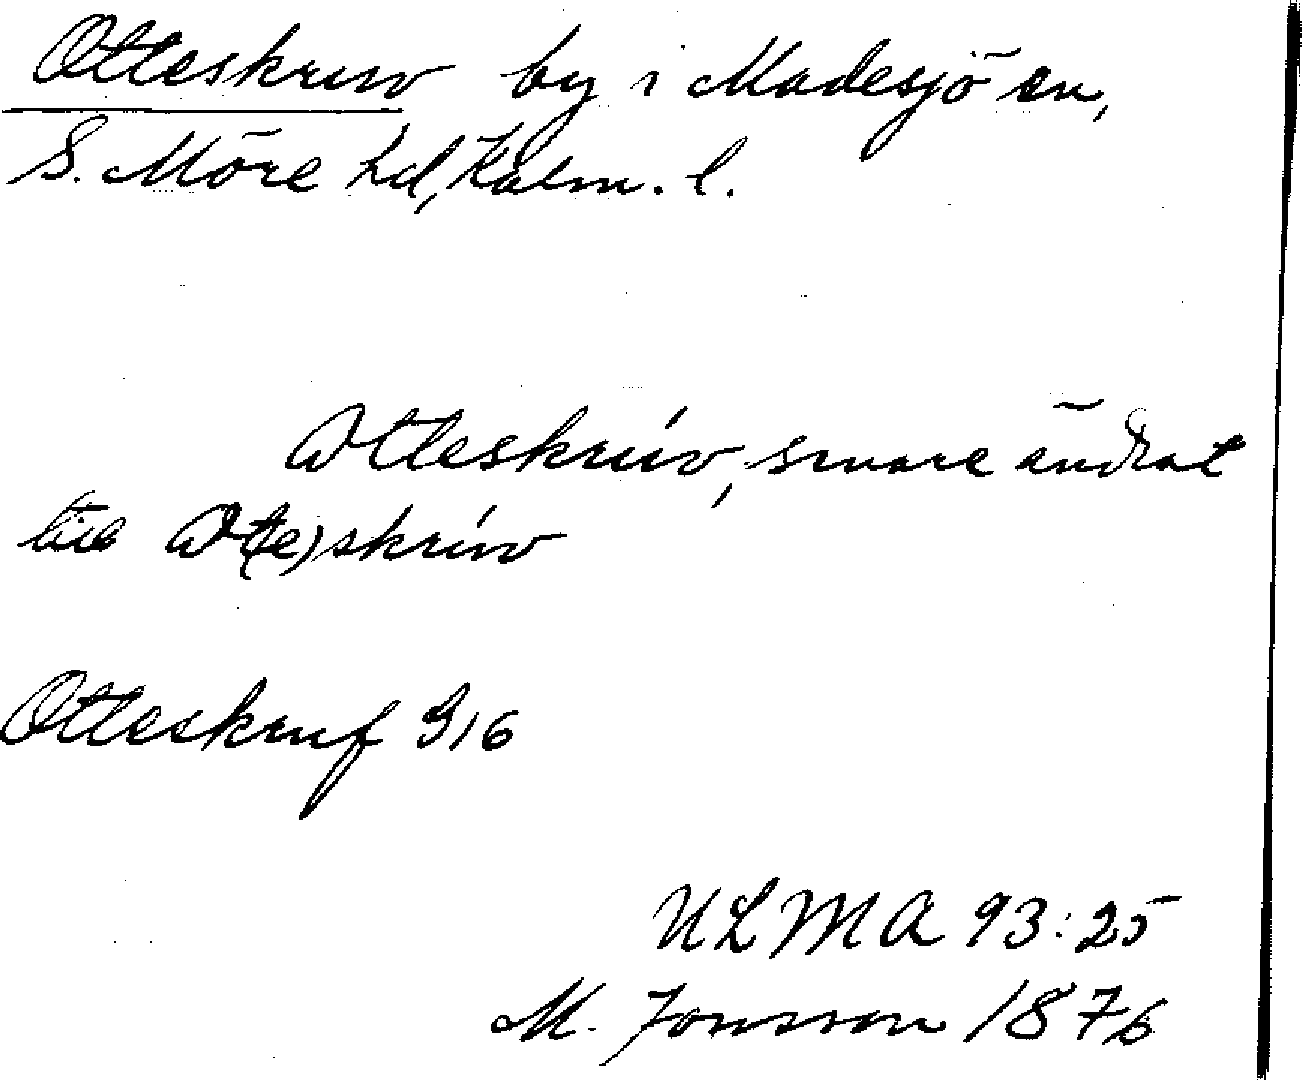 Otteskruv by i Madesjö sn,
S. Möre hd, Kalm. l.
Otteskrúv, senare ändrat
till Ot(te)skrúv
Otteskruf 916
ULMA 93:25
M. Jonsson 1876